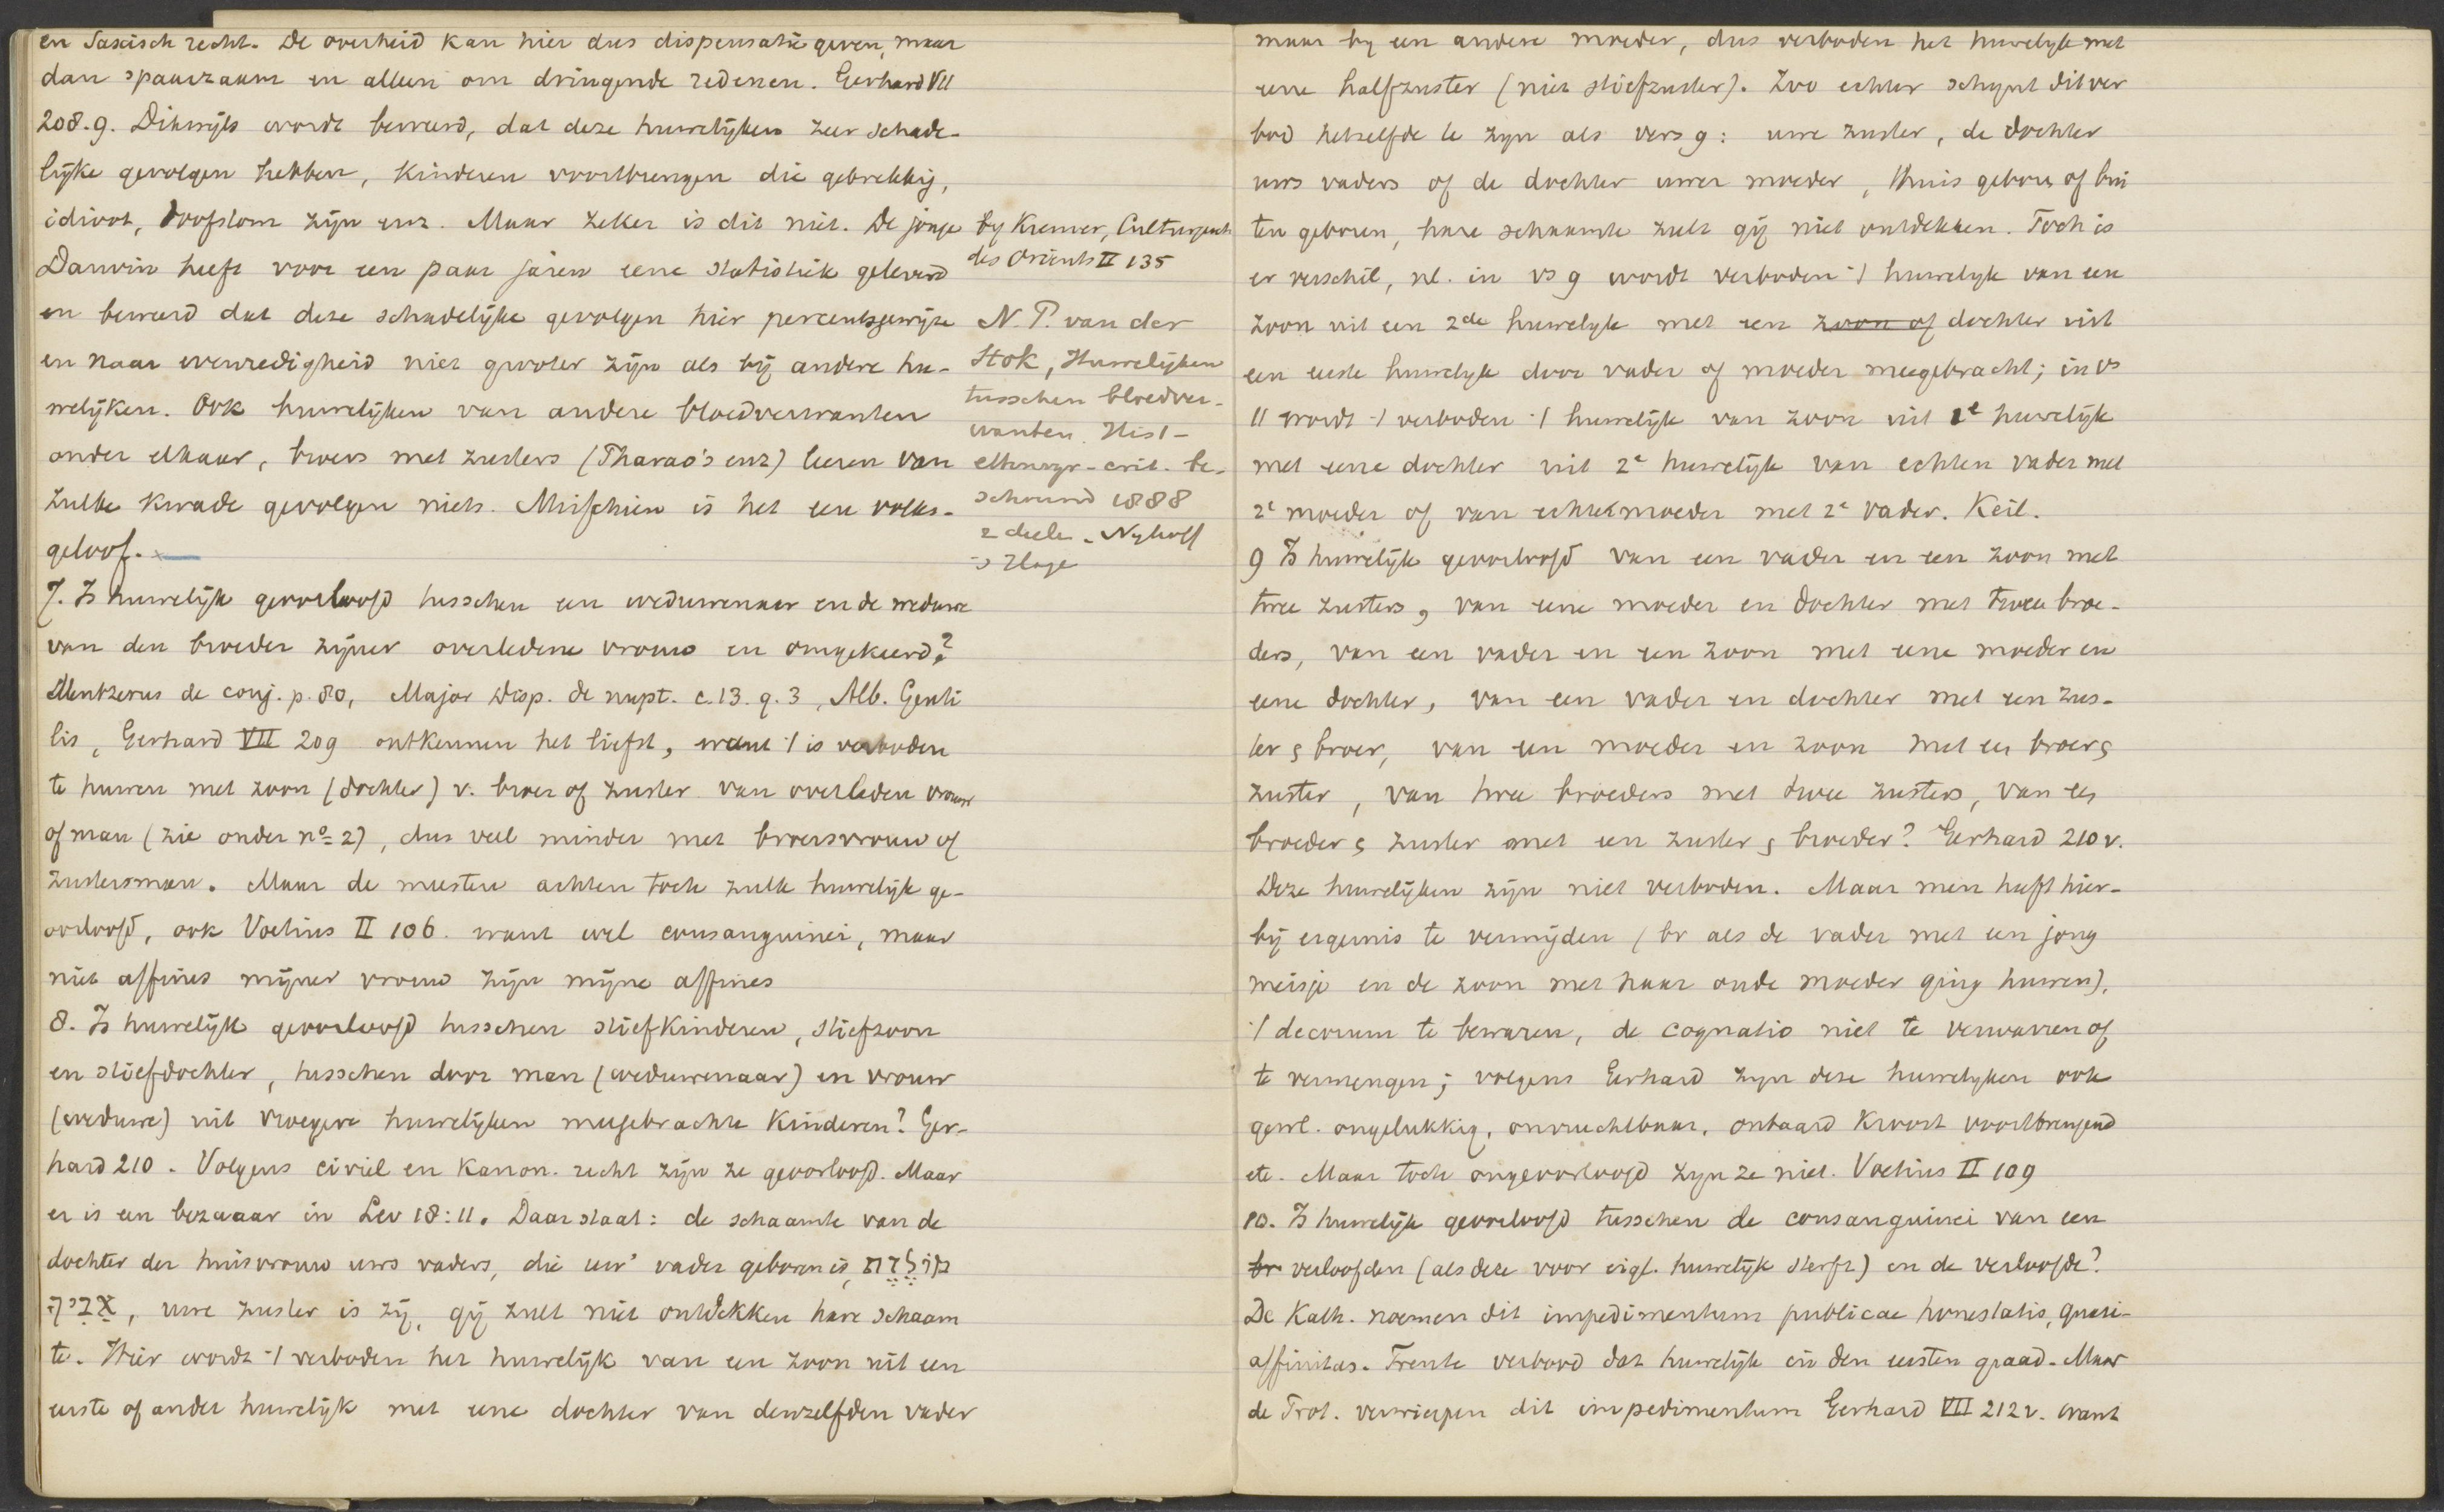 en Saxisch recht. De overheid kan hier dus dispensatie geven, maar
dan spaarzaam en alleen om dringende redenen. Gerhard VII
208.9. Dikwijls wordt beweerd, dat deze huwelijken zeer schade-
lijke gevolgen hebben, kinderen voortbrengen die gebrekkig,
idioot, doofstom zijn enz. Maar zeker is dit niet. De jonge
Darwin heeft voor een paar jaren eene statistiek geleverd
en beweerd dat deze schadelijke gevolgen hier percentsgewijze
en naar evenredigheid niet grooter zijn als bij andere hu-
welijken. Ook huwelijken van andere bloedverwanten
onder elkaar, broers met zusters (Pharao's enz) leeren van
zulke kwade gevolgen niets. Misschien is het een volks-
geloof.
by Kremer, Culturgesch
des Orients II 135
N. P. van der
Stok, Huwelijken
tusschen bloedver-
wanten. Hist-
ethnogr-crit. be-
schouwd 1888
2 deele. Nyhoff
's Hage
7. Is huwelijk geoorloofd tusschen een weduwenaar en de weduwe
van den broeder zijner overledene vrouw en omgekeerd?
Mentzerus de conj. p. 80, Major Disp. de nupt. c.13. q. 3, Alb. Genti
lis, Gerhard VII 209 ontkennen het liefst, want 't is verboden
te huwen met zoon (dochter) v. broer of zuster van overleden vrouw
of man (zie onder nº 2), dus veel minder met broersvrouw of
zustersman. Maar de meesten achten toch zulk huwelijk ge-
oorloofd, ook Voetius II 106. want wel consanguinei, maar
niet affines mijner vrouw zijn mijne affines
8. Is huwelijk geoorloofd tusschen stiefkinderen, stiefzoon
en stiefdochter, tusschen door man (weduwenaar) en vrouw
(weduwe) uit vroegere huwelijken meegebrachte kinderen? Ger-
hard 210. Volgens civiel en kanon. recht zijn ze geoorloofd. Maar
er is een bezwaar in Lev 18:11. Daar staat: de schaamte van de
dochter der huisvrouw uws vaders, die uw' vader geboren is, מוֹלֶדֶת
אָבִיךָ, uwe zuster is zij, gij zult niet ontdekken hare schaam
te. Hier wordt 't verboden het huwelijk van een zoon uit een
eerste of ander huwelijk met eene dochter van denzelfden vader
maar by een andere moeder, dus verboden het huwelyk met
eene halfzuster (niet stiefzuster). Zoo echter schynt dit ver
bod hetzelfde te zyn als vers 9: uwe zuster, de dochter
uws vaders of de dochter uwer moeder, thuis geboren of bui
ten geboren, hare schaamte zult gij niet ontdekken. Toch is
er verschil, nl. in vs 9 wordt verboden 't huwelyk van een
zoon uit een 2de huwelyk met een zoon of dochter uit
een eerste huwelyk door vader of moeder meegebracht; in vs
11 wordt 't verboden 't huwelijk van zoon uit 1e huwelijk
met eene dochter uit 2e huwelijk van echten vader met
2e moeder of van echte moeder met 2e vader. Keil.
9 Is huwelijk geoorloofd van een vader en een zoon met
twee zusters, van eene moeder en dochter met twee broe-
ders, van een vader en een zoon met eene moeder en
eene dochter, van een vader en dochter met een zus-
ter & broer, van een moeder en zoon met een broer &
zuster, van twee broeders met twee zusters, van een
broeder & zuster met een zuster & broeder? Gerhard 210v.
Deze huwelijken zijn niet verboden. Maar men heeft hier-
bij ergernis te vermijden (bv als de vader met een jong
meisje en de zoon met haar oude moeder ging huwen),
't decorum te bewaren, de cognatio niet te verwarren of
te vermengen; volgens Gerhard zyn deze huwelyken ook
gewl. ongelukkig, onvruchtbaar, ontaard kroost voortbrengend
etc. Maar toch ongeoorloofd zyn ze niet. Voetius II 109
10. Is huwelijk geoorloofd tusschen de consanguinei van een
br verloofden (als deze voor eigl. huwelijk sterft) en de verloofde?
De Kath. noemen dit impedimentum publicae honestatis, quasi-
affinitas. Trente verbood dat huwelijk in den eersten graad. Maar
de Prot. verwierpen dit impedimentum Gerhard VII 212v. want